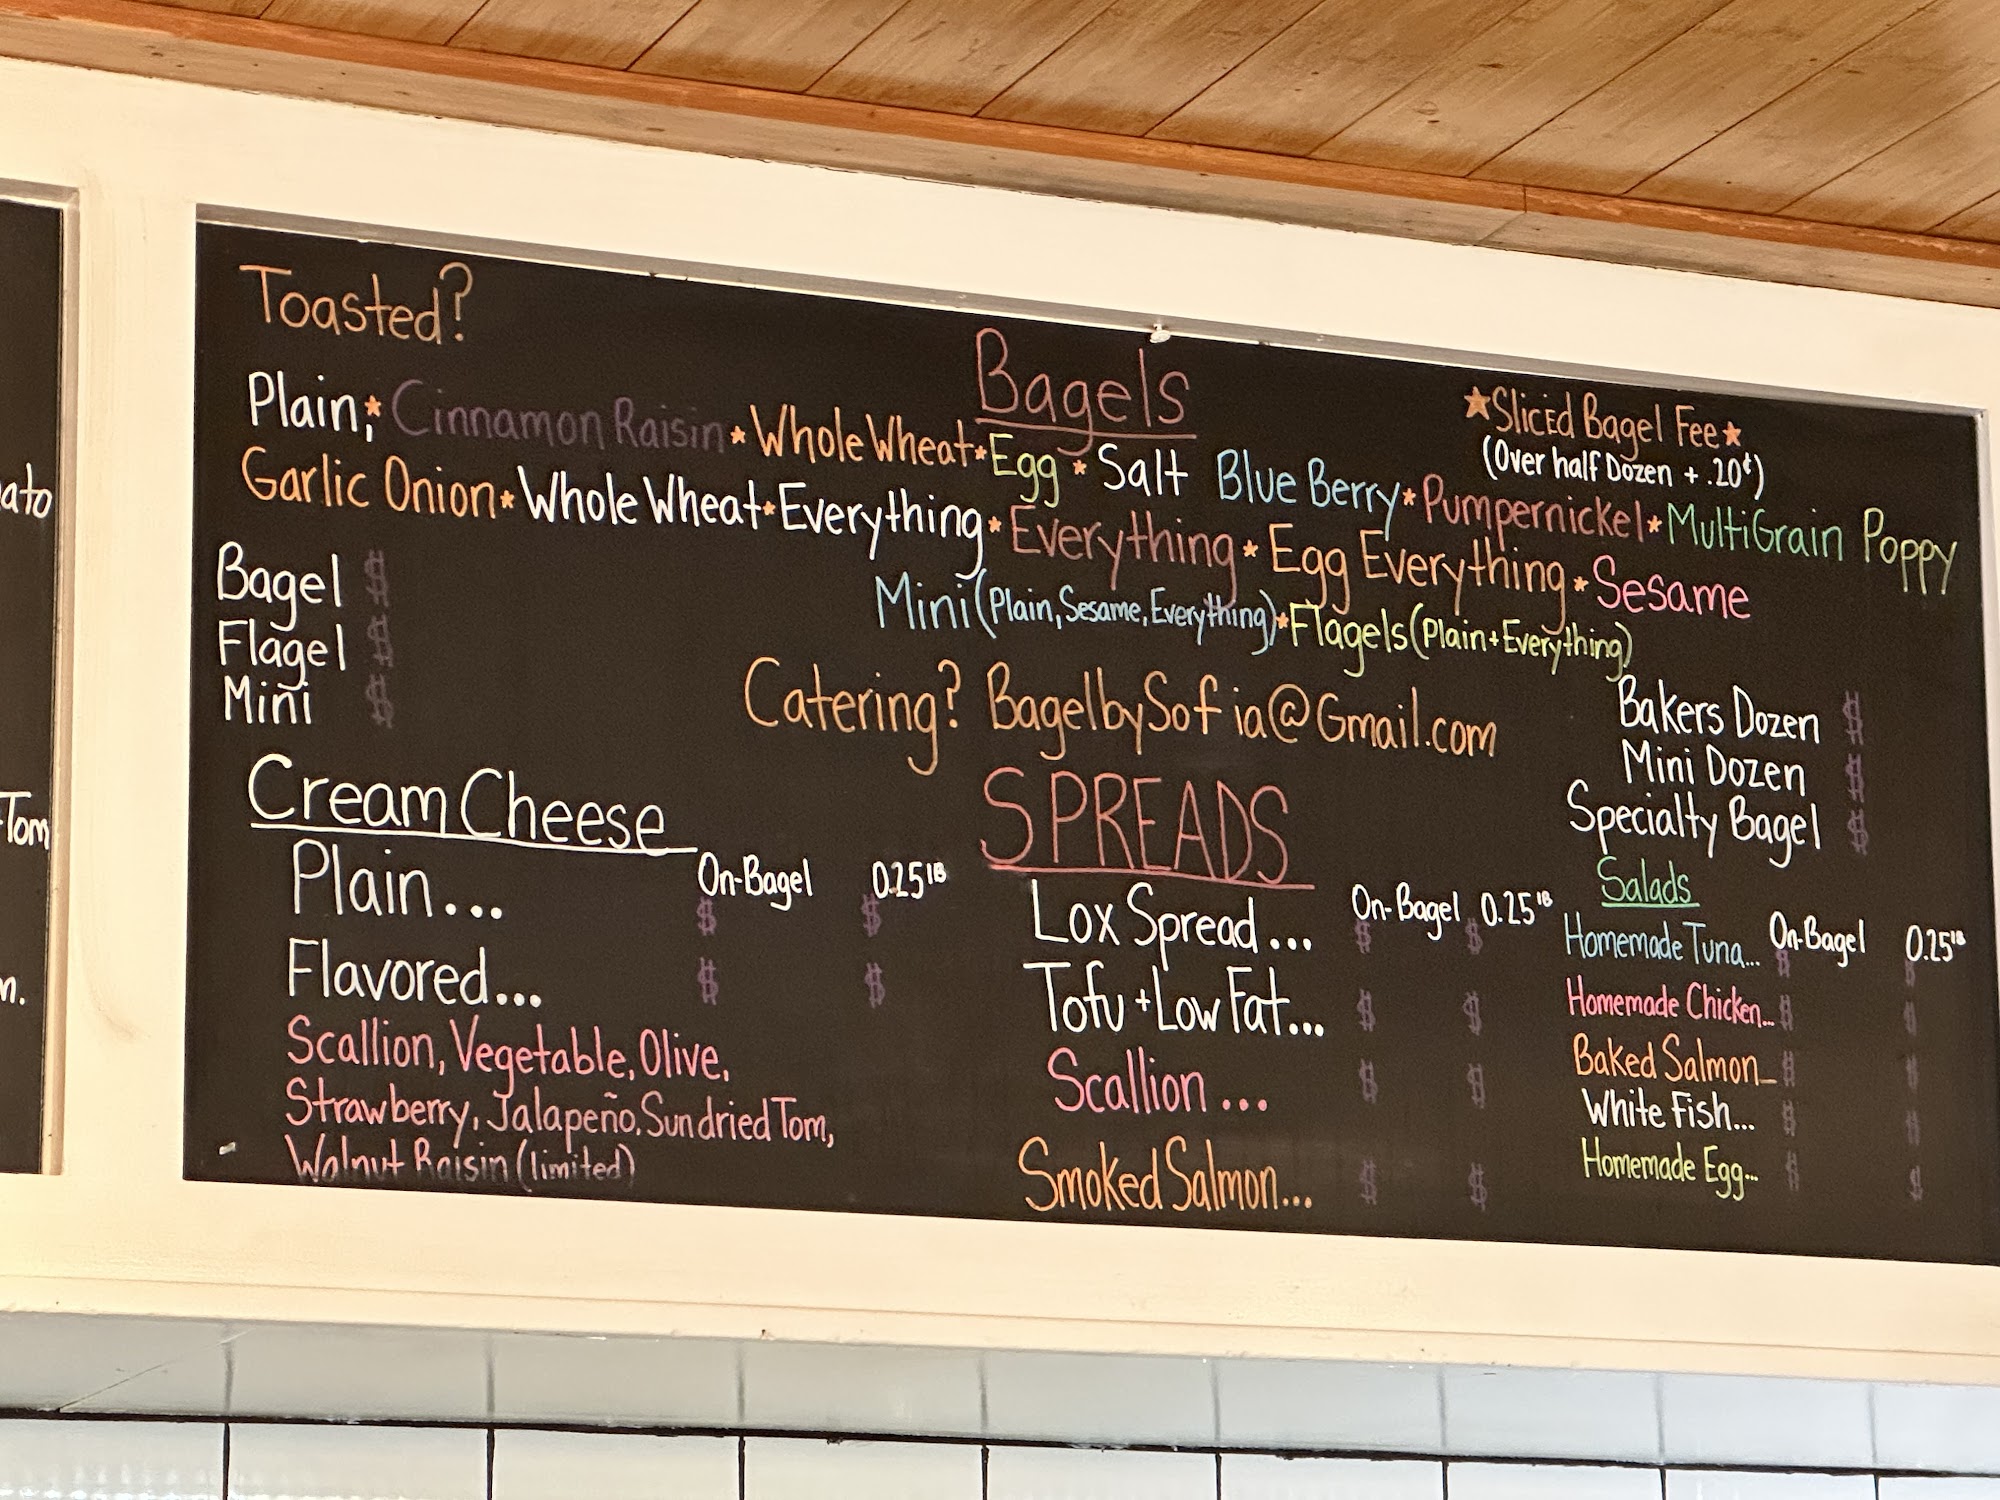 Toasted?
Bagels
★Sliced Bagel Fee★
(Over half Dozen + .20¢)
Plain;★Cinnamon Raisin★Whole Wheat★Egg★Salt Blue Berry★Pumpernickel★MultiGrain Poppy
Garlic Onion★Whole Wheat★Everything★Everything★Egg Everything★Sesame
Mini(Plain, Sesame, Everything)★Flagels(Plain+Everything)
Bagel $
Flagel $
Mini $
Catering? BagelbySofia@Gmail.com
Bakers Dozen $
Mini Dozen $
Specialty Bagel $
Cream Cheese
On-Bagel 0.25lB
Plain... $ $
Flavored... $ $
Scallion, Vegetable, Olive,
Strawberry, Jalapeño, Sundried Tom,
Walnut Raisin (limited)
SPREADS
On-Bagel 0.25lB
Lox Spread... $ $
Tofu + Low Fat... $ $
Scallion... $ $
Smoked Salmon... $ $
Salads
On-Bagel 0.25lB
Homemade Tuna... $ $
Homemade Chicken... $ $
Baked Salmon... $ $
White Fish... $ $
Homemade Egg... $ $
ato
Tom
n.